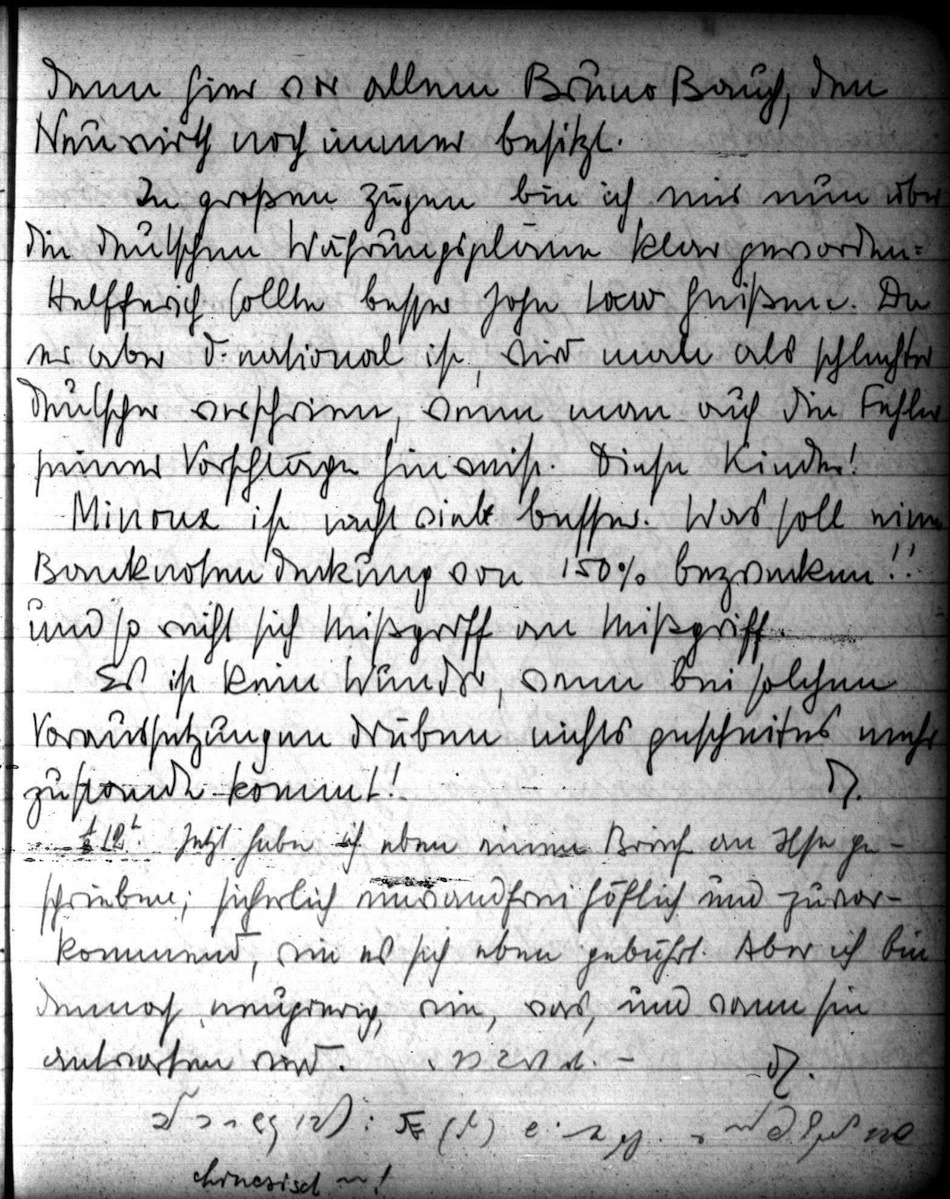 denn hier vor allem Bruno Bauch, den
Neuwirth noch immer besitzt.
In großen Zügen bin ich mir nun über
die deutschen Währungspläne klar geworden:
Helfferich sollte besser John Law heißen. Da
er aber d. national ist, wird man als schlechter
Deutscher verschrien, wenn man auf die Fehler
seiner Vorschläge hinweist. Diese Kinder!
Minoux ist nicht viel besser. Was soll eine
Banknotendeckung von 150% bezwecken!!
Und so reiht sich Mißgriff an Mißgriff.
Es ist kein Wunder, wenn bei solchen
Voraussetzungen drüben nichts gescheites mehr
zustande kommt!
Jetzt habe ich eben einen Brief an Ilse ge-
schrieben; sicherlich einwandfrei höflich und zuvor-
kommend, wie es sich eben gebührt. Aber ich bin
dennoch neugierig, wie, was, und wann sie
antworten wird.
chinesisch